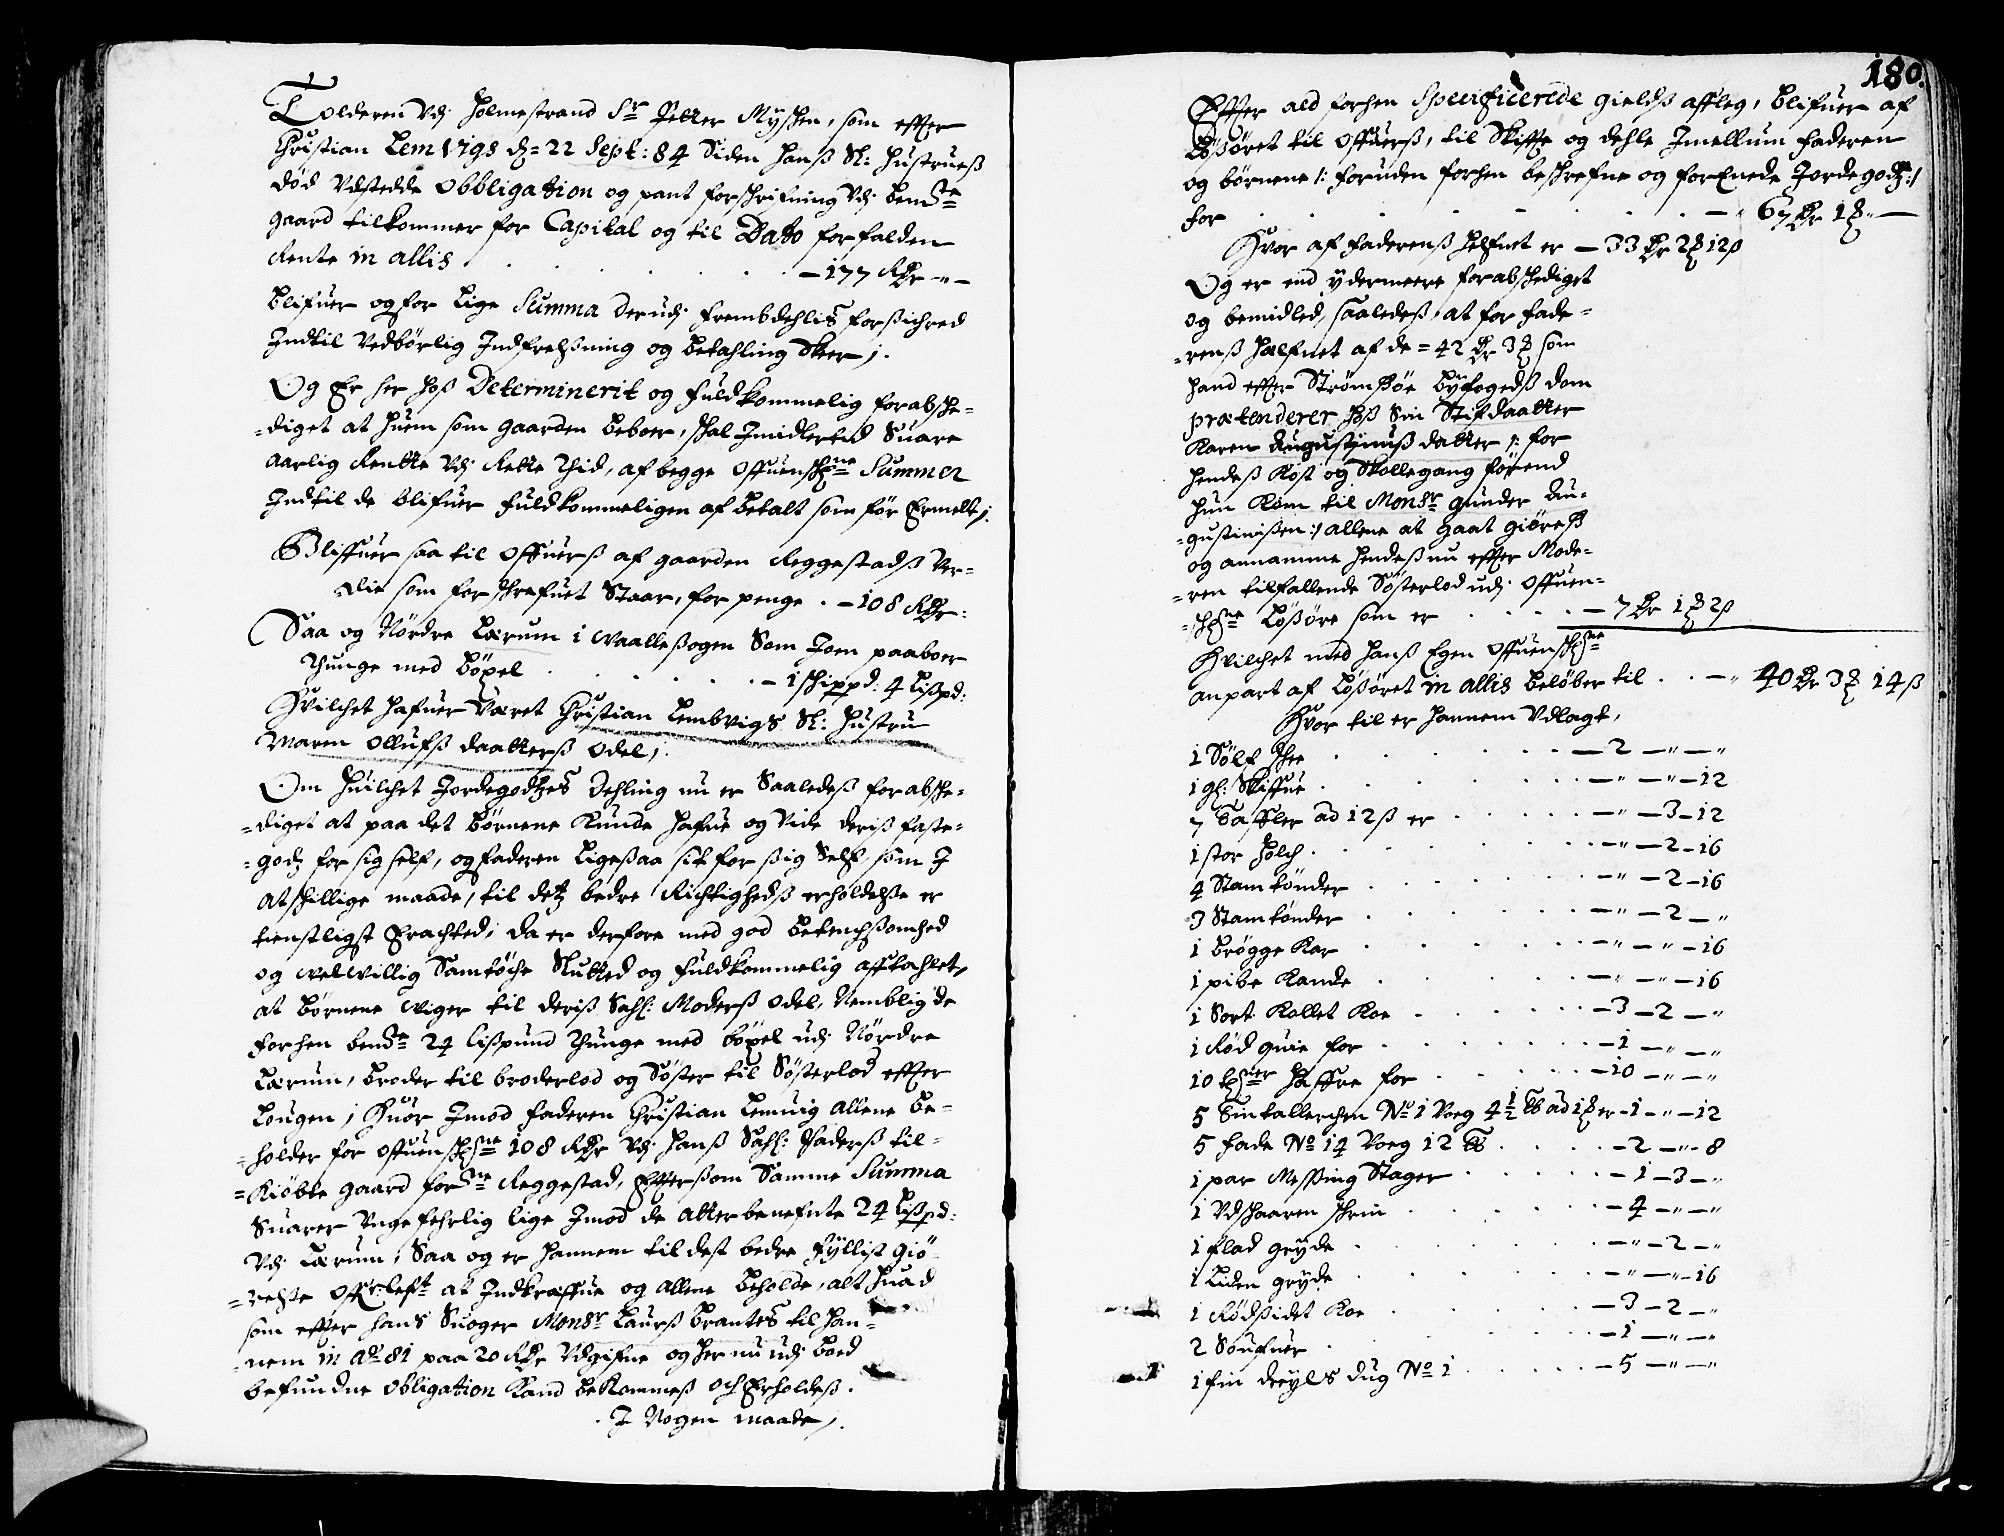 Tolderen Udj Holmestrand Sr Petter Myhen, som effter
Christian Lemvigs d= 22 Sept: 84 Siden hanß Sl: Hustrueß
død Udstedde Obbligation og pant forskrifning Udj bemte
gaard tilkommer for Capital og til Dato forfalden
Rente in allis . . . . . . . — 177 RDr -"-
blifuer og for lige Summa derudj frembdehlis forsichred
Indtil Vedbörlig Indfrelßning og betahling Skeer;.
Og Er her hoß Determinerit og fuldkommelig forabske-
-diget at huem som gaarden beboer, skal Imidlertid Suare
aarlig Rentte Udj Rette Thid, af begge offuenschne Summer
Indtil de blifuer fuldkommeligen af betalt som før Ermelt;
Bliffuer saa til offuerß af gaarden Reggestadß Ver-
-die som forskrefuet Staar, for penge . — 108 RDr:
Saa og Nördre Lærum i Waalleßogen Som Joen paaboer
Thunge med böxel . . . . . . — 1 Schippd: 4 Lißpd:
Hvilchet hafuer Været Christian Lembvigs Sl: Hustru
Maren Ollufß daatterß Odel;.
Om huilchet Jordegodtzes Dehling nu er Saaledeß forabske-
-diget at paa det børnene Kunde hafue og Vide deriß faste-
-godtz for sig self, og faderen Ligesaa sit for sig Self, som J
atskillige maade, til detz bedre Richtighedß erholdelße er
tienstligst Erachted; da er derfore med god betenchßomhed
og welwillig Samtöche Slutted og fuldkommelig afftahlet,
at börnene Wiger til deriß Sahl: Moderß Odel, Nemblig de
forhen bemte 24 lißpund Thunge med böxel udj Nördre
Lærum, broder til broderlod og Söster til Sösterlod effter
Lougen; Huor Imod faderen Christian Lemuig allene be-
-holder for offuenschne 108 RDr Udj hanß Sahl: Faderß til-
-kiöbte gaard forne Reggestad, Efftersom Samme Summa
Suarer Ungefehrlig lige Imod de atterbenefnte 24 Lißpd:
Udj Lærum, Saa og er hannem til dest bedre fyllist giö-
-relße offuerleft at Indkræffue og allene beholde, alt huad
som effter hans Suoger Monsr Laurß Brantes til han-
-nem in Ao 81 paa 20 RDr Udgifne og her nu udj boed
befundne Obligation Kand bekommeß och Erholdeß.
J Nogen maade,.
180.
Effter ald forhen Specificerede gieldß affleg, blifuer af
Lößöret til offuerß, til Skiffte og dehle Imellum faderen
og børnene /: foruden forhen beskrefne og forEnede Jordegodtz :/
for . . . . . . . . — " 67 Dr 1 ß "—
Hvor af faderenß helfuet er — 33 Dr 2 ß 12 ß
Og er end ydermeere forabskediget
og bemidled, saaledeß, at for fade-
-renß halfuet af de = 42 Dr 3 ß som
hand effter Strömßöe byfogedß dom
prætenderer hoß Sin Stifdaatter
Karen Augustinuß datter /: for
hendeß Kost og Skollegang förend
hun kom til Monsr gunder Au-
-gustinißen :/ allene at gaat giöreß
og annamme hendeß nu effter Mode-
-ren tilfallende Sösterlod udj offuen-
-schne Lößöre som er . . . . — 7 Dr 1 ß 2 ß
Hvilchet med hanß Egen offuenschne
anpart af Lößöret in allis beløber til . . — " 40 Dr 3 ß 14 ß
Hvor til er hannem Udlagt,
1 Sölf skee . . . . . . — 2 — " — "
1 gl: Skiffue . . . . . . — " — " — 12
7 Saffler ad 12 ß er . . . . . — " — 3 — 12
1 stor Hölch . . . . . . — " — 2 — 16
4 Stamtönder . . . . . . — " — 2 — 16
3 Stamtönder . . . . . . — " — 2 — "
1 brögge Kar . . . . . . — " — " — 16
1 pibe Kande . . . . . . — " — " — 16
1 Sort Kollet Koe . . . . . — 3 — 2 — "
1 Rød quie for . . . . . . — 1 — " — "
10 tönder Haffre for . . . . . — 10 — " — "
5 Tintallerchen No 1 Voeg 4½ ℔ ad 1 ß er — 1 — " — 12
5 fade No 14 Voeg 12 ℔ . . . . — 2 — " — 8
1 par Messing Stager . . . . . — 1 — 3 — "
1 Udskaaren skrin . . . . . — 4 — " — "
1 flad gryde . . . . . . — " — 2 — "
1 Liden gryde . . . . . . — " — " — 16
1 Rödsidet Koe . . . . . . — 3 — 2 — "
2 Söufuer . . . . . . — 1 — " — "
1 fin dreyls dug No 1 . . . . . — 5 — " — "